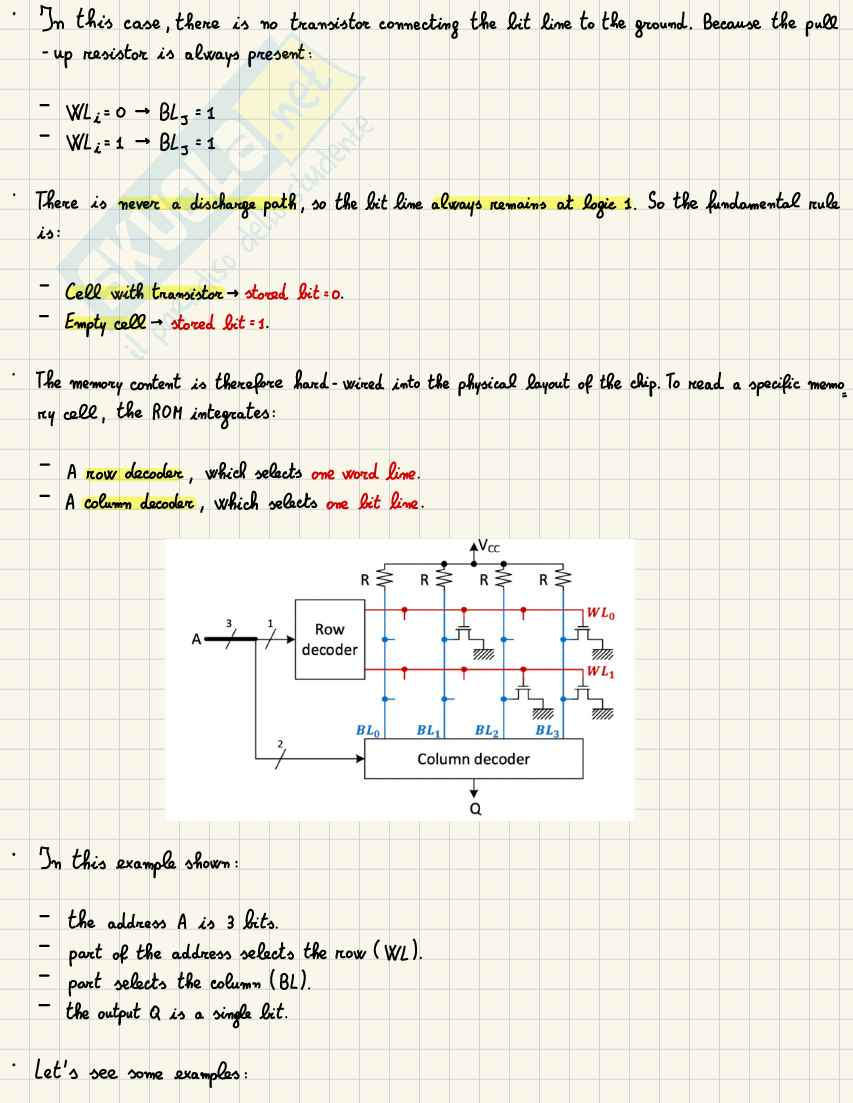 · In this case, there is no transistor connecting the bit line to the ground. Because the pull
-up resistor is always present:
- WLi = 0 → BLJ = 1
- WLi = 1 → BLJ = 1
· There is never a discharge path, so the bit line always remains at logic 1. So the fundamental rule
is:
- Cell with transistor → stored bit = 0.
- Empty cell → stored bit = 1.
· The memory content is therefore hard-wired into the physical layout of the chip. To read a specific memo=
ry cell, the ROM integrates:
- A row decoder, which selects one word line.
- A column decoder, which selects one bit line.
VCC
R R R R
WL0
A 3 1 Row
decoder
WL1
BL0 BL1 BL2 BL3
2 Column decoder
Q
· In this example shown:
- the address A is 3 bits.
- part of the address selects the row (WL).
- part selects the column (BL).
- the output Q is a single bit.
· Let's see some examples:
SKUOLA.net
il paradiso dello studente